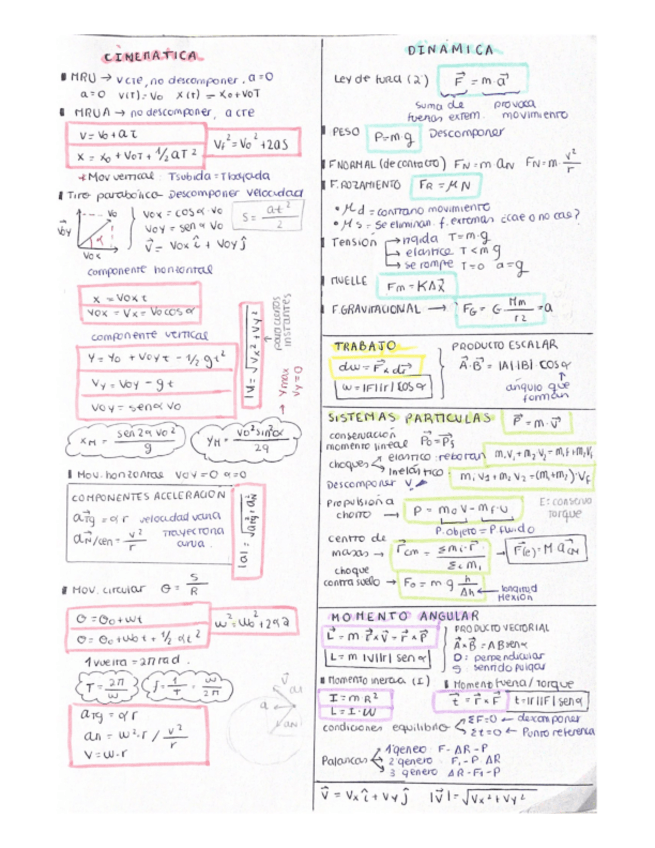 CINEMATICA
MRU → v cte, no descomponer, a=0
a=0 v(t)=Vo x(t) = Xo+VoT
MRUA → no descomponer, a cte
V = Vo+at
Vf² = Vo² + 2aS
X = Xo + VoT + 1/2 aT²
Mov vertical: Tsubida = Tbajada
Tiro parabólico Descomponer velocidad
Vo
Voy
α
Vox
Vox = cos α · Vo
Voy = sen α Vo
V⃗ = Vox î + Voy ĵ
S = at²/2
componente horizontal
X = Vox t
Vox = Vx = Vo cos α
componente vertical
Y = Yo + Voy t - 1/2 gt²
Vy = Voy - gt
Voy = sen α Vo
|V| = √Vx² + Vy²
para ciertos instantes
Ymax Vy=0
XM = sen 2α Vo² / g
YM = Vo² sin² α / 2g
Mov. horizontal Voy = 0 α=0
COMPONENTES ACELERACION
a⃗Tg = α r velocidad varia
a⃗N/cen = v²/r trayectoria curva
Mov. circular θ = S/R
θ = θo + ωt
ω² = ωo² + 2αθ
θ = θo + ωo t + 1/2 αt²
1 vuelta = 2π rad.
T = 2π/ω
f = 1/T = ω/2π
aTg = α r
an = ω² · r / v²/r
V = ω · r
DINÁMICA
Ley de fuerza (2ª) F⃗ = m · a⃗
suma de fuerzas extern.
provoca movimiento
PESO P = m g Descomponer
F NORMAL (de contacto) FN = m aN FN = m · v²/r
F. ROZAMIENTO FR = μ N
• μd = contrario movimiento
• μs = se eliminan f. externas ¿cae o no cae?
TENSIÓN
rígida T = m·g
elastica T < m g
se rompe T=0 a=g
MUELLE Fm = K Δx
F. GRAVITACIONAL → FG = G Mm/r² = a
TRABAJO
dw = F⃗ x dr⃗
W = |F||r| cos α
PRODUCTO ESCALAR
A⃗ · B⃗ = |A||B| cos α
ángulo que forman
SISTEMAS PARTICULAS P⃗ = m · v⃗
conservación momento lineal P⃗o = P⃗f
choques
elastico: rebotan
inelástico
m₁ V₁ + (m₁+m₂) · Vf
Descomponer V
Propulsión a chorro → P = mo V - mf · U
P. objeto = P fluido
centro de masas → r⃗cm = Σ mi · r⃗ / Σ mi → F(e) = M aCM
choque contra suelo → Fo = m g h/Δh ← longitud flexión
MOMENTO ANGULAR
L⃗ = m r⃗ x V⃗ = r⃗ x P⃗
L = m |V||r| sen α
PRODUCTO VECTORIAL
A⃗ x B⃗ = AB sen α
D: perpendicular
S: sentido pulgar
Momento inercia (I)
I = m R²
L = I · ω
Momento fuerza / torque
t⃗ = r⃗ x F⃗
t = |r||F| sen α
condiciones equilibrio
ΣF=0 ← descomponer
Σt=0 ← Punto referencia
Palancas
1 genero F - ΔR - P
2 genero F₁ - P ΔR
3 genero ΔR - F₁ - P
V⃗ = Vx î + Vy ĵ |V⃗| = √Vx² + Vy²